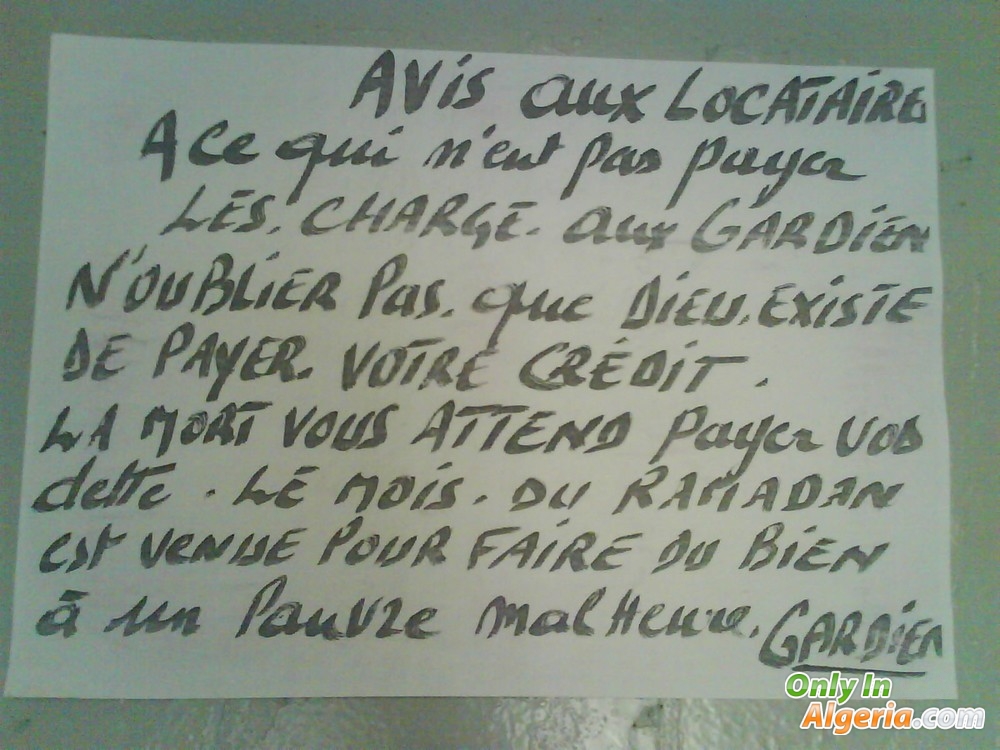 AVis aux LOCATAIRE
A Ce qui n'ent pas payer
LES. CHARGE. aux GARDIEN
N'OUBLIER Pas. que DIEU. EXISTE
DE PAYER. VOTRE CRÉDIT.
LA MORT VOUS ATTEND Payer vos
dette. LE MOIS. DU RAMADAN
est VENUE POUR FAIRE DU BIEN
à un Pauvre malHeure. GARDIEN
Only In
Algeria.com